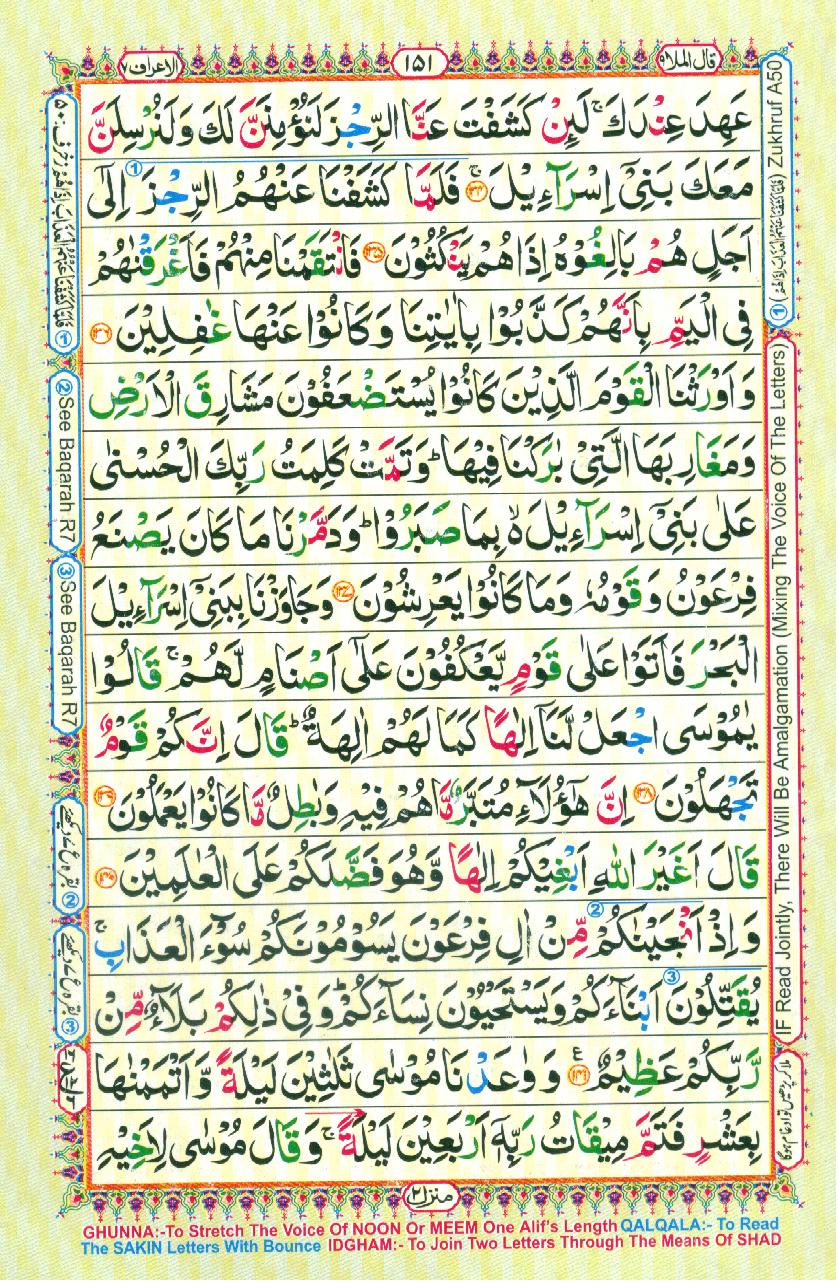 قال الملا ٩
١٥١
الاعراف ٧
عَهِدَ عِنْدَكَ ۚ لَئِنْ كَشَفْتَ عَنَّا الرِّجْزَ لَنُؤْمِنَنَّ لَكَ وَلَنُرْسِلَنَّ
مَعَكَ بَنِيْٓ اِسْرَآءِيْلَ ۚ ﴿۱۳۴﴾ فَلَمَّا كَشَفْنَا عَنْهُمُ الرِّجْزَ اِلٰٓى
اَجَلٍ هُمْ بَالِغُوْهُ اِذَا هُمْ يَنْكُثُوْنَ ﴿۱۳۵﴾ فَانْتَقَمْنَا مِنْهُمْ فَاَغْرَقْنٰهُمْ
فِى الْيَمِّ بِاَنَّهُمْ كَذَّبُوْا بِاٰيٰتِنَا وَكَانُوْا عَنْهَا غٰفِلِيْنَ ﴿۱۳۶﴾
وَاَوْرَثْنَا الْقَوْمَ الَّذِيْنَ كَانُوْا يُسْتَضْعَفُوْنَ مَشَارِقَ الْاَرْضِ
وَمَغَارِبَهَا الَّتِيْ بٰرَكْنَا فِيْهَا ؕ وَتَمَّتْ كَلِمَتُ رَبِّكَ الْحُسْنٰى
عَلٰى بَنِيْٓ اِسْرَآءِيْلَ ۙ بِمَا صَبَرُوْا ؕ وَدَمَّرْنَا مَا كَانَ يَصْنَعُ
فِرْعَوْنُ وَقَوْمُهٗ وَمَا كَانُوْا يَعْرِشُوْنَ ﴿۱۳۷﴾ وَجَاوَزْنَا بِبَنِيْٓ اِسْرَآءِيْلَ
الْبَحْرَ فَاَتَوْا عَلٰى قَوْمٍ يَّعْكُفُوْنَ عَلٰٓى اَصْنَامٍ لَّهُمْ ۚ قَالُوْا
يٰمُوْسَى اجْعَلْ لَّنَآ اِلٰهًا كَمَا لَهُمْ اٰلِهَةٌ ؕ قَالَ اِنَّكُمْ قَوْمٌ
تَجْهَلُوْنَ ﴿۱۳۸﴾ اِنَّ هٰٓؤُلَآءِ مُتَبَّرٌ مَّا هُمْ فِيْهِ وَبٰطِلٌ مَّا كَانُوْا يَعْمَلُوْنَ ﴿۱۳۹﴾
قَالَ اَغَيْرَ اللّٰهِ اَبْغِيْكُمْ اِلٰهًا وَّهُوَ فَضَّلَكُمْ عَلَى الْعٰلَمِيْنَ ﴿۱۴۰﴾
وَاِذْ اَنْجَيْنٰكُمْ مِّنْ اٰلِ فِرْعَوْنَ يَسُوْمُوْنَكُمْ سُوْٓءَ الْعَذَابِ ۚ
يُقَتِّلُوْنَ اَبْنَآءَكُمْ وَيَسْتَحْيُوْنَ نِسَآءَكُمْ ؕ وَفِيْ ذٰلِكُمْ بَلَآءٌ مِّنْ
رَّبِّكُمْ عَظِيْمٌ ﴿۱۴۱﴾ وَوٰعَدْنَا مُوْسٰى ثَلٰثِيْنَ لَيْلَةً وَّاَتْمَمْنٰهَا
بِعَشْرٍ فَتَمَّ مِيْقَاتُ رَبِّهٖٓ اَرْبَعِيْنَ لَيْلَةً ۚ وَقَالَ مُوْسٰى لِاَخِيْهِ
منزل ٢
① Zukhruf A50
IF Read Jointly, There Will Be Amalgamation (Mixing The Voice Of The Letters)
② See Baqarah R7
③ See Baqarah R7
GHUNNA:-To Stretch The Voice Of NOON Or MEEM One Alif's Length QALQALA:- To Read
The SAKIN Letters With Bounce IDGHAM:- To Join Two Letters Through The Means Of SHAD